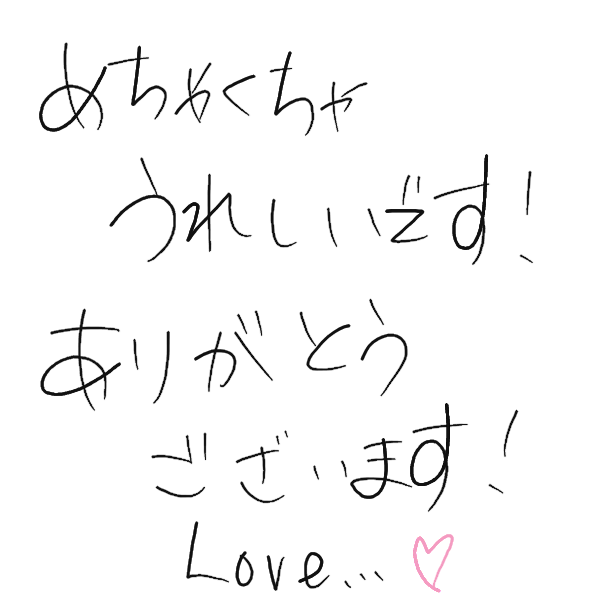 めちゃくちゃ
うれしいです!
ありがとう
ございます!
Love...♡